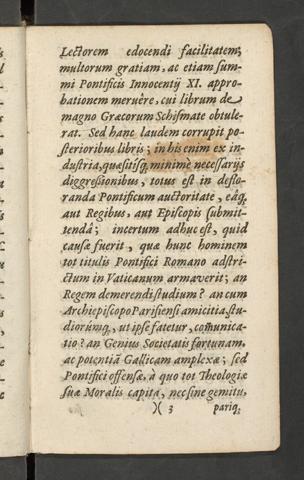 Lectorem edocendi facilitatem;
multorum gratiam, ac etiam sum-
mi Pontificis Innocentij XI. appro-
bationem meruêre, cui librum de
magno Græcorum Schismate obtule-
rat. Sed hanc laudem corrupit po-
sterioribus libris; in his enim ex in-
dustria, quæsitisq́; minimè necessarijs
diggressionibus, totus est in deflo-
randa Pontificum auctoritate, eâq́;
aut Regibus, aut Episcopis submit-
tendâ; incertum adhuc est, quid
causæ fuerit, quæ hunc hominem
tot titulis Pontifici Romano adstri-
ctum in Vaticanum armaverit; an
Regem demerendi studium? an cum
Archiepiscopo Parisiensi amicitia, stu-
diorumq́; ut ipse fatetur, com̃unica-
tio? an Genius Societatis fortunam,
ac potentiã Gallicam amplexæ; sed
Pontifici offensæ, à quo tot Theologiæ
suæ Moralis capita, nec sine gemitu,
)( 3 pariq́;